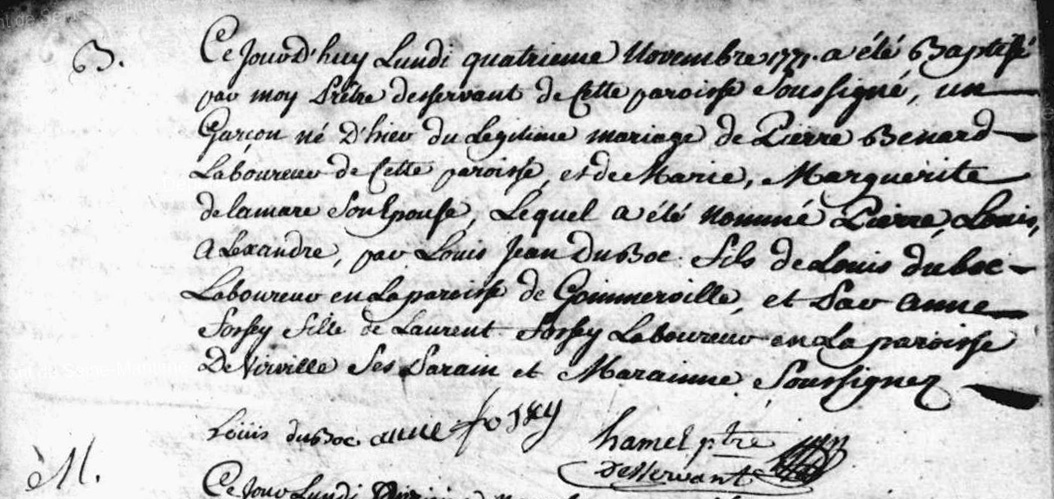 B.
Ce Jourd'huy Lundi quatrieme Novembre 1771. a été Baptisé
par moy Prêtre desservant de Cette paroisse Soussigné, un
Garçon né D'hier du Legitime mariage de Pierre Benard
Laboureur de Cette paroisse, et de Marie, Marguerite
delamare Son Epouse, Lequel a été nommé Pierre, Louis,
Alexandre, par Louis Jean DuBoc fils de Louis duboc
Laboureur en La paroisse de Gommerville, et Par anne
fossey fille de Laurent fossey Laboureur en La paroisse
De Virville Ses Parain et Marainne Soussignez
Louis duBoc anne hamel ptre
desservant
M.
Ce Jour Lundi